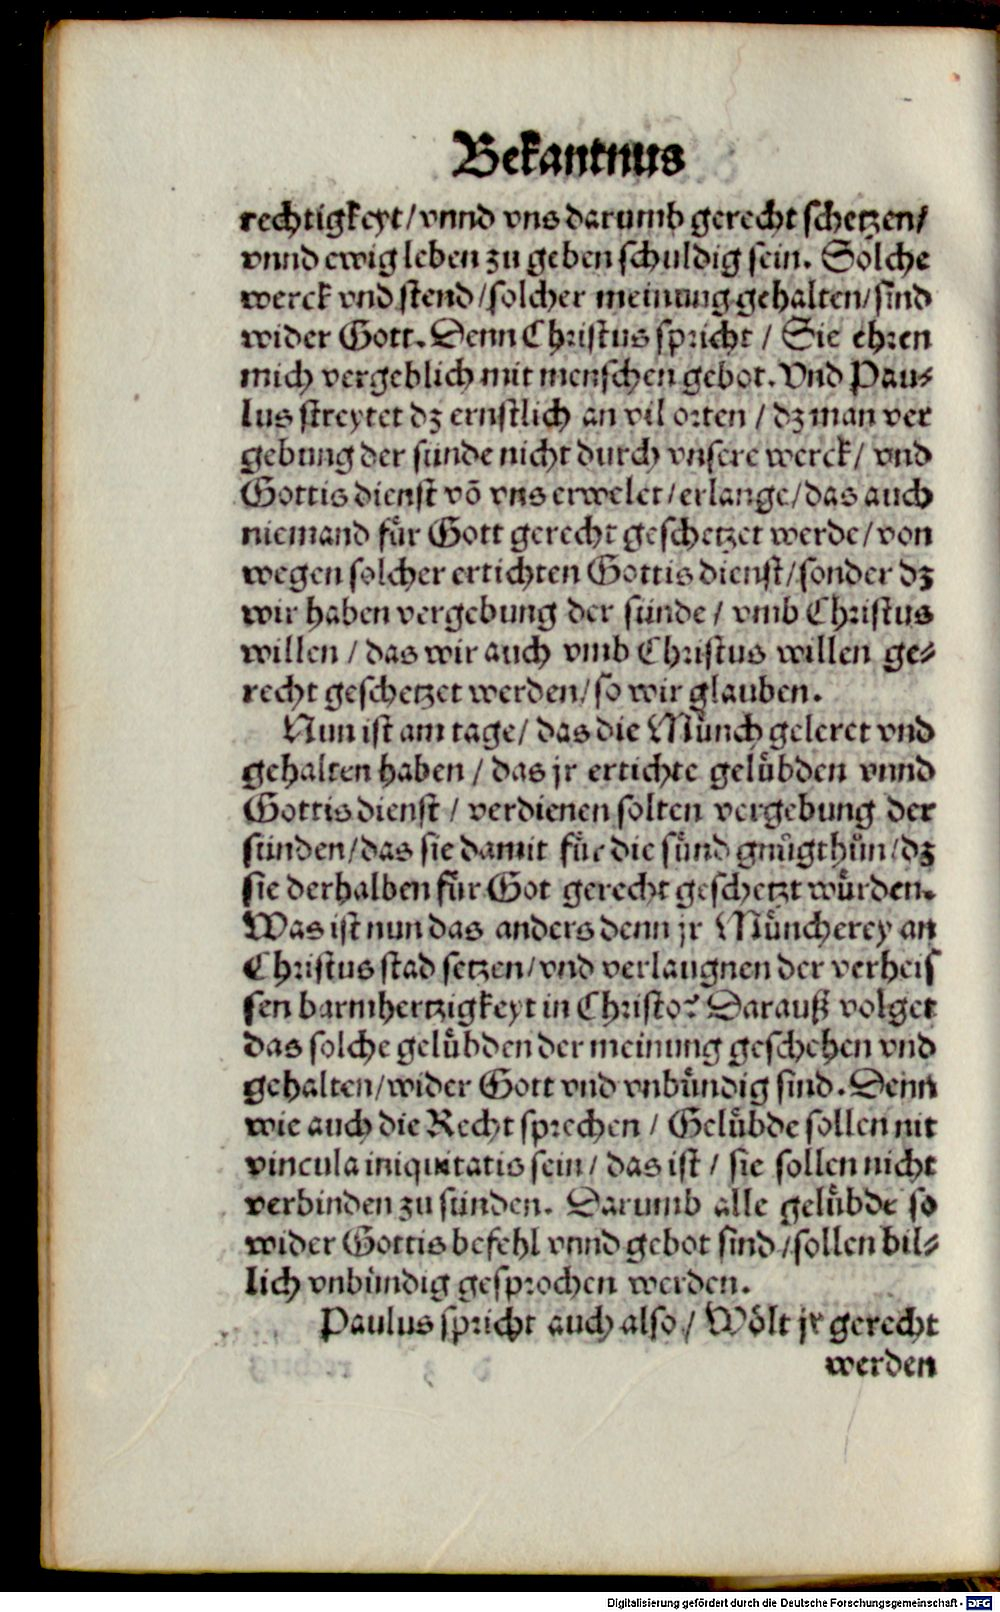 Bekantnus
rechtigkeyt/ vnnd vns darumb gerecht schetzen/
vnnd ewig leben zu geben schuldig sein. Solche
werck vnd stend/ solcher meinung gehalten/ sind
wider Gott. Denn Christus spricht / Sie ehren
mich vergeblich mit menschen gebot. Vnd Pau⸗
lus streytet dz ernstlich an vil orten / dz man ver
gebung der sünde nicht durch vnsere werck/ vnd
Gottis dienst võ vns erwelet/ erlange/ das auch
niemand für Gott gerecht geschetzet werde/ von
wegen solcher ertichten Gottis dienst/ sonder dz
wir haben vergebung der sünde / vmb Christus
willen / das wir auch vmb Christus willen ge⸗
recht geschetzet werden/ so wir glauben.
Nun ist am tage/ das die Münch geleret vnd
gehalten haben / das jr ertichte gelübden vnnd
Gottis dienst / verdienen solten vergebung der
sünden/ das sie damit für die sünd gnůgthůn/ dz
sie derhalben für Got gerecht geschetzt würden.
Was ist nun das anders denn jr Müncherey an
Christus stad setzen/ vnd verlaugnen der verheis
sen barmhertzigkeyt in Christo? Darauß volget
das solche gelübden der meinung geschehen vnd
gehalten/ wider Gott vnd vnbündig sind. Denn
wie auch die Recht sprechen / Gelübde sollen nit
vincula iniquitatis sein/ das ist / sie sollen nicht
verbinden zu sünden. Darumb alle gelübde so
wider Gottis befehl vnnd gebot sind / sollen bil⸗
lich vnbündig gesprochen werden.
Paulus spricht auch also / Wölt jr gerecht
werden
Digitalisierung gefördert durch die Deutsche Forschungsgemeinschaft - DFG